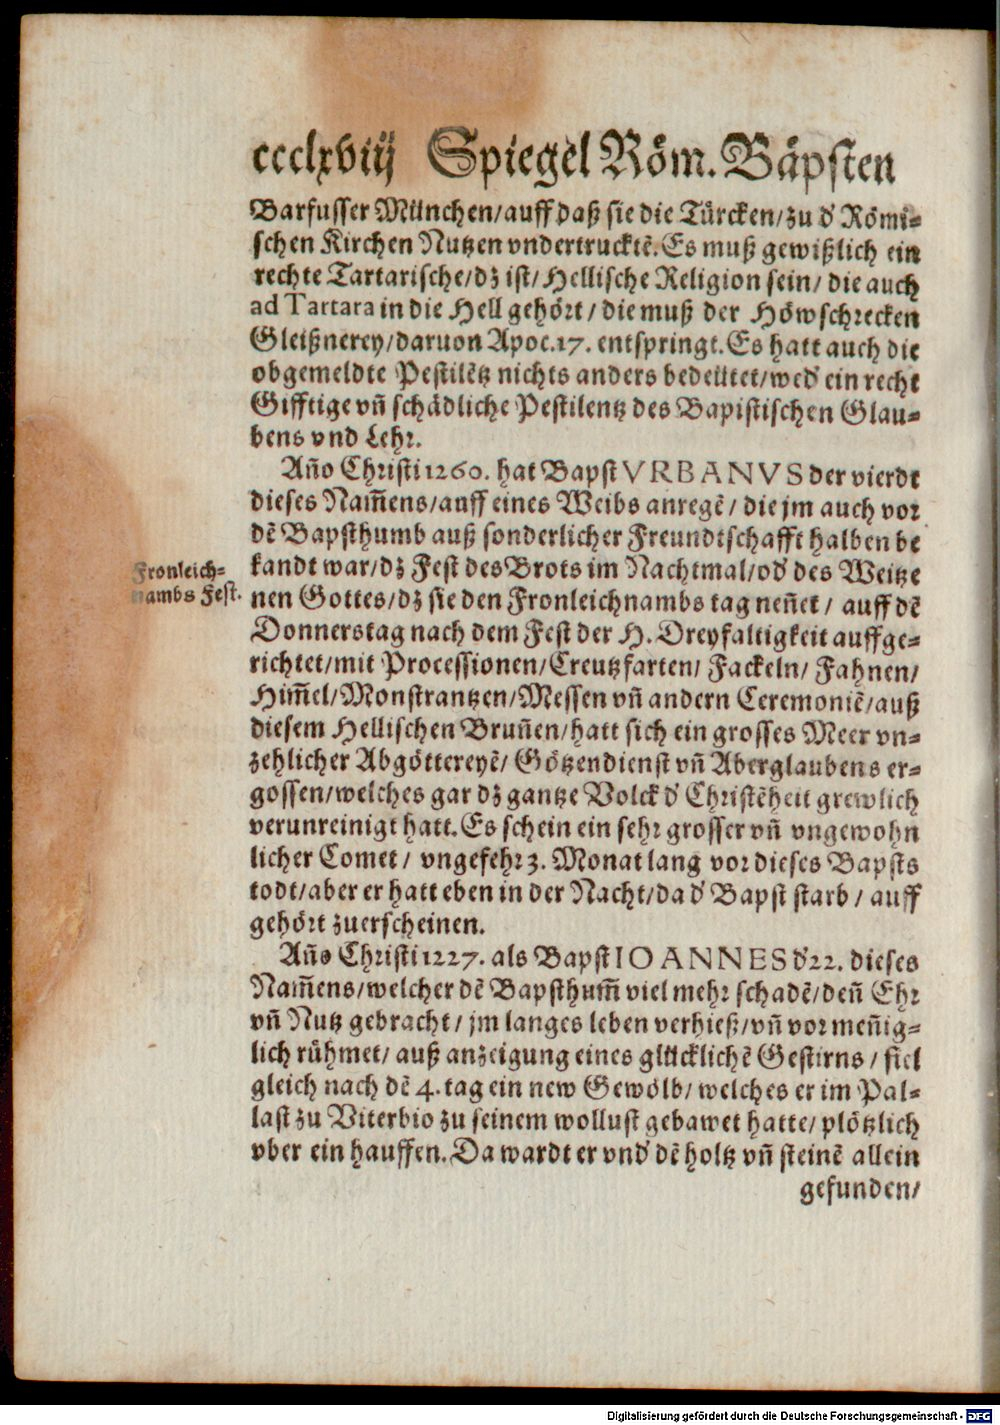 ccclxviij Spiegel Röm. Bäpsten
Barfusser München/auff daß sie die Türcken/zu d' Römi⸗
schen Kirchen Nutzen vndertrucktē. Es muß gewißlich ein
rechte Tartarische/dz ist/Hellische Religion sein/die auch
ad Tartara in die Hell gehört/die muß der Höwschrecken
Gleißnerey/daruon Apoc.17. entspringt. Es hatt auch die
obgemeldte Pestilētz nichts anders bedeütet/wed' ein recht
Gifftige vñ schädliche Pestilentz des Bapistischen Glau⸗
bens vnd Lehr.
Año Christi 1260. hat Bapst VRBANVS der vierdt
dieses Nam̃ens/auff eines Weibs anregē/die jm auch vor
Fronleich⸗
nambs Fest.
dē Bapsthumb auß sonderlicher Freundtschafft halben be
kandt war/dz Fest des Brots im Nachtmal/od' des Weitze
nen Gottes/dz sie den Fronleichnambs tag neñet/auff dē
Donnerstag nach dem Fest der H. Dreyfaltigkeit auffge⸗
richtet/mit Processionen/Creutzfarten/Fackeln/Fahnen/
Him̃el/Monstrantzen/Messen vñ andern Ceremoniē/auß
diesem Hellischen Bruñen/hatt sich ein grosses Meer vn⸗
zehlicher Abgöttereyē/Götzendienst vñ Aberglaubens er⸗
gossen/welches gar dz gantze Volck d' Christēheit grewlich
verunreinigt hatt. Es schein ein sehr grosser vñ vngewohn
licher Comet/vngefehr 3. Monat lang vor dieses Bapsts
todt/aber er hatt eben in der Nacht/da d' Bapst starb/auff
gehört zuerscheinen.
Año Christi 1227. als Bapst IOANNES d' 22. dieses
Nam̃ens/welcher dē Bapsthum̃ viel mehr schadē/deñ Ehr
vñ Nutz gebracht/jm langes leben verhieß/vñ vor meñig⸗
lich rühmet/auß anzeigung eines glücklichē Gestirns/fiel
gleich nach dē 4. tag ein new Gewölb/welches er im Pal⸗
last zu Viterbio zu seinem wollust gebawet hatte/plötzlich
vber ein hauffen. Da wardt er vnd' dē holtz vñ steinē allein
gefunden/
Digitalisierung gefördert durch die Deutsche Forschungsgemeinschaft - DFG